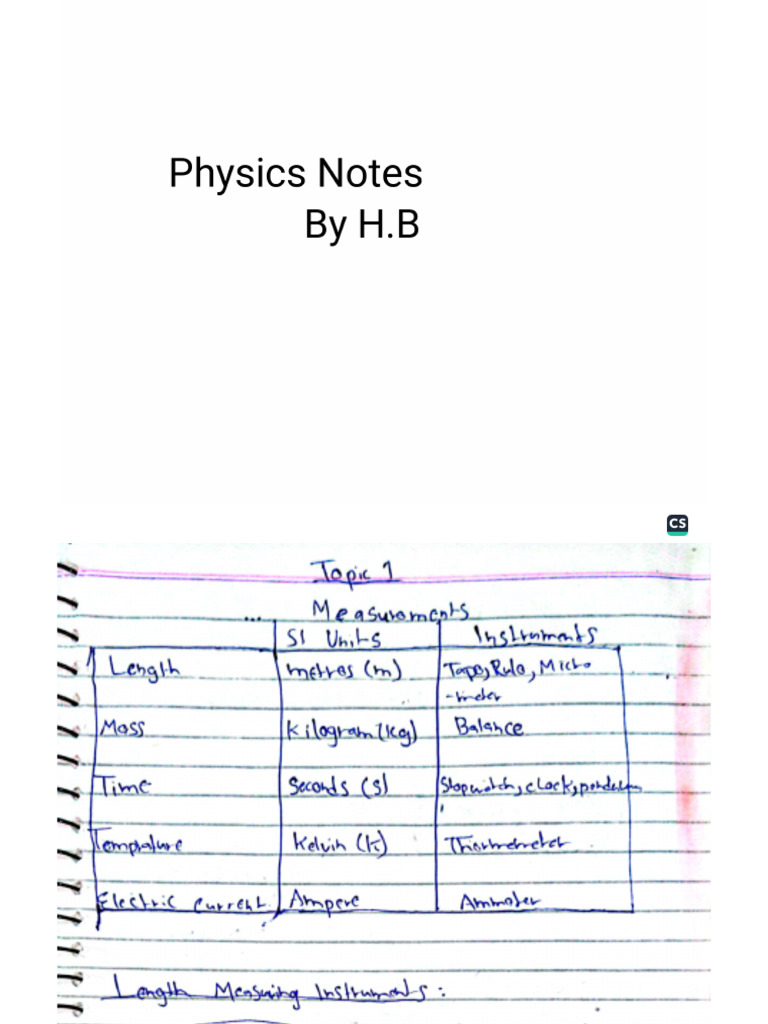 Physics Notes
By H.B
CS
Topic 1
Measurements
SI Units Instruments
Length metres (m) Tape, Rule, Micro
-meter
Mass Kilogram (Kg) Balance
Time Seconds (s) Stopwatch, clock, pendulum
Temprature Kelvin (k) Thermometer
Electric current Ampere Ammeter
Length Measuring Instruments: